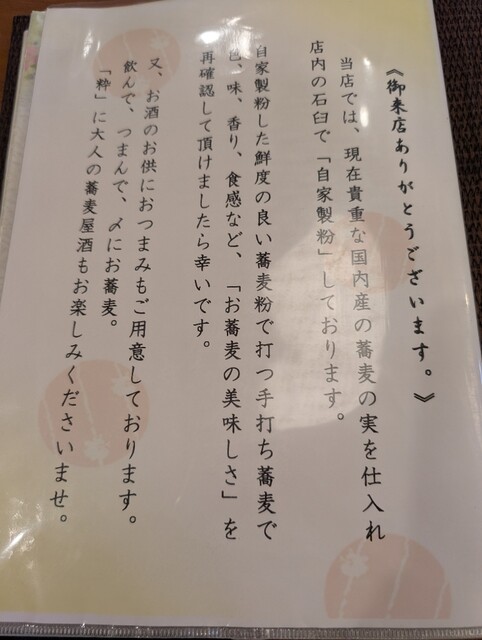 《御来店ありがとうございます。》
当店では、現在貴重な国内産の蕎麦の実を仕入れ
店内の石臼で「自家製粉」しております。
自家製粉した鮮度の良い蕎麦粉で打つ手打ち蕎麦で
色、味、香り、食感など、「お蕎麦の美味しさ」を
再確認して頂けましたら幸いです。
又、お酒のお供におつまみもご用意しております。
飲んで、つまんで、〆にお蕎麦。
「粋」に大人の蕎麦屋酒もお楽しみくださいませ。